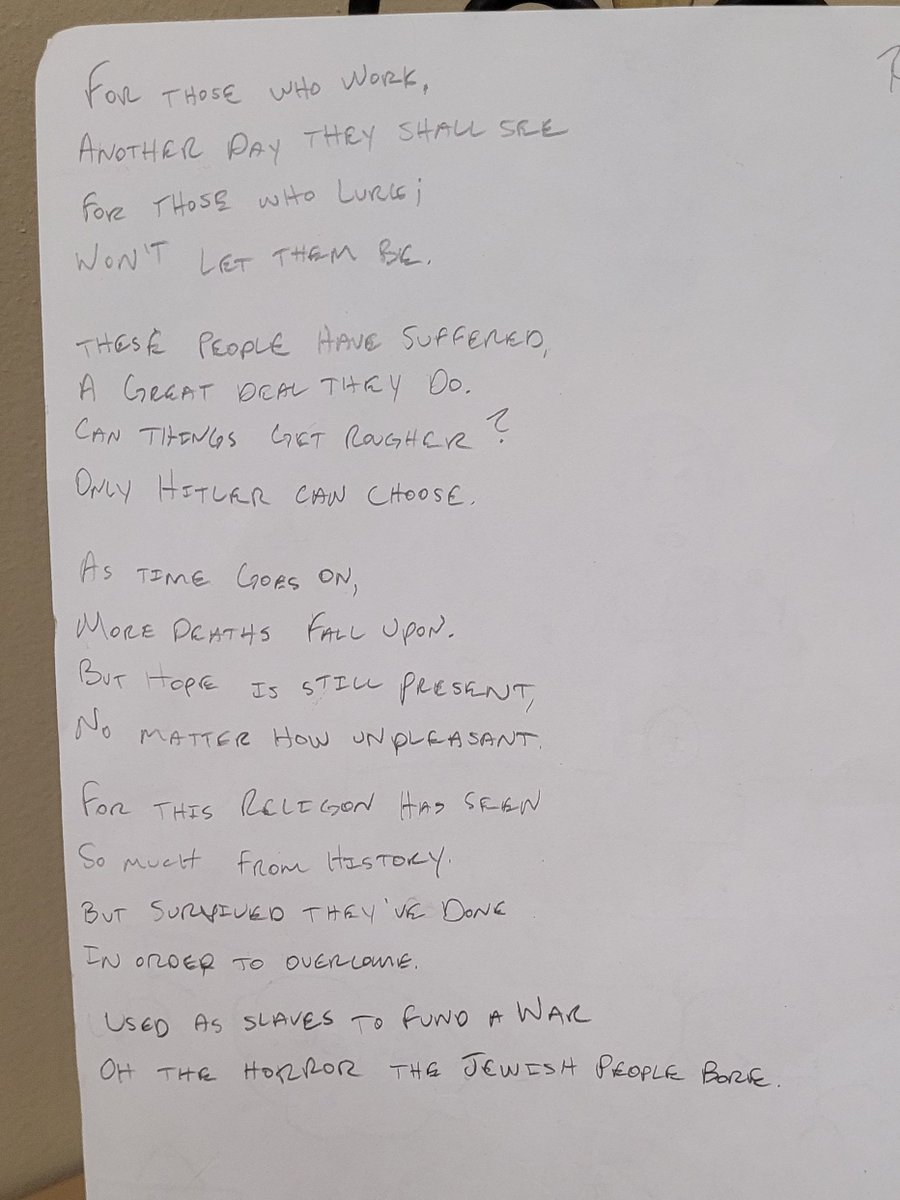 For those who work,
Another day they shall see
For those who lurk;
Won't let them be.
These people have suffered,
A great deal they do.
Can things get rougher?
Only Hitler can choose.
As time goes on,
More deaths fall upon.
But hope is still present,
No matter how unpleasant.
For this religon has seen
So much from history.
But survived they've done
In order to overcome.
Used as slaves to fund a war
Oh the horror the Jewish people bore.